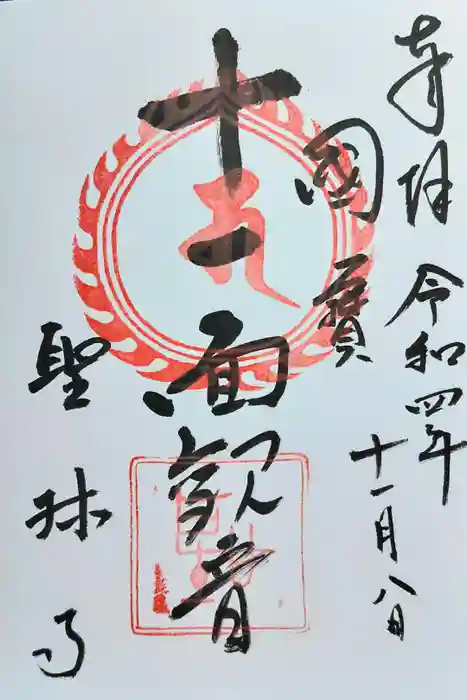 奉拝 令和四年
十一月八日
國寶
十一面観音
聖林寺